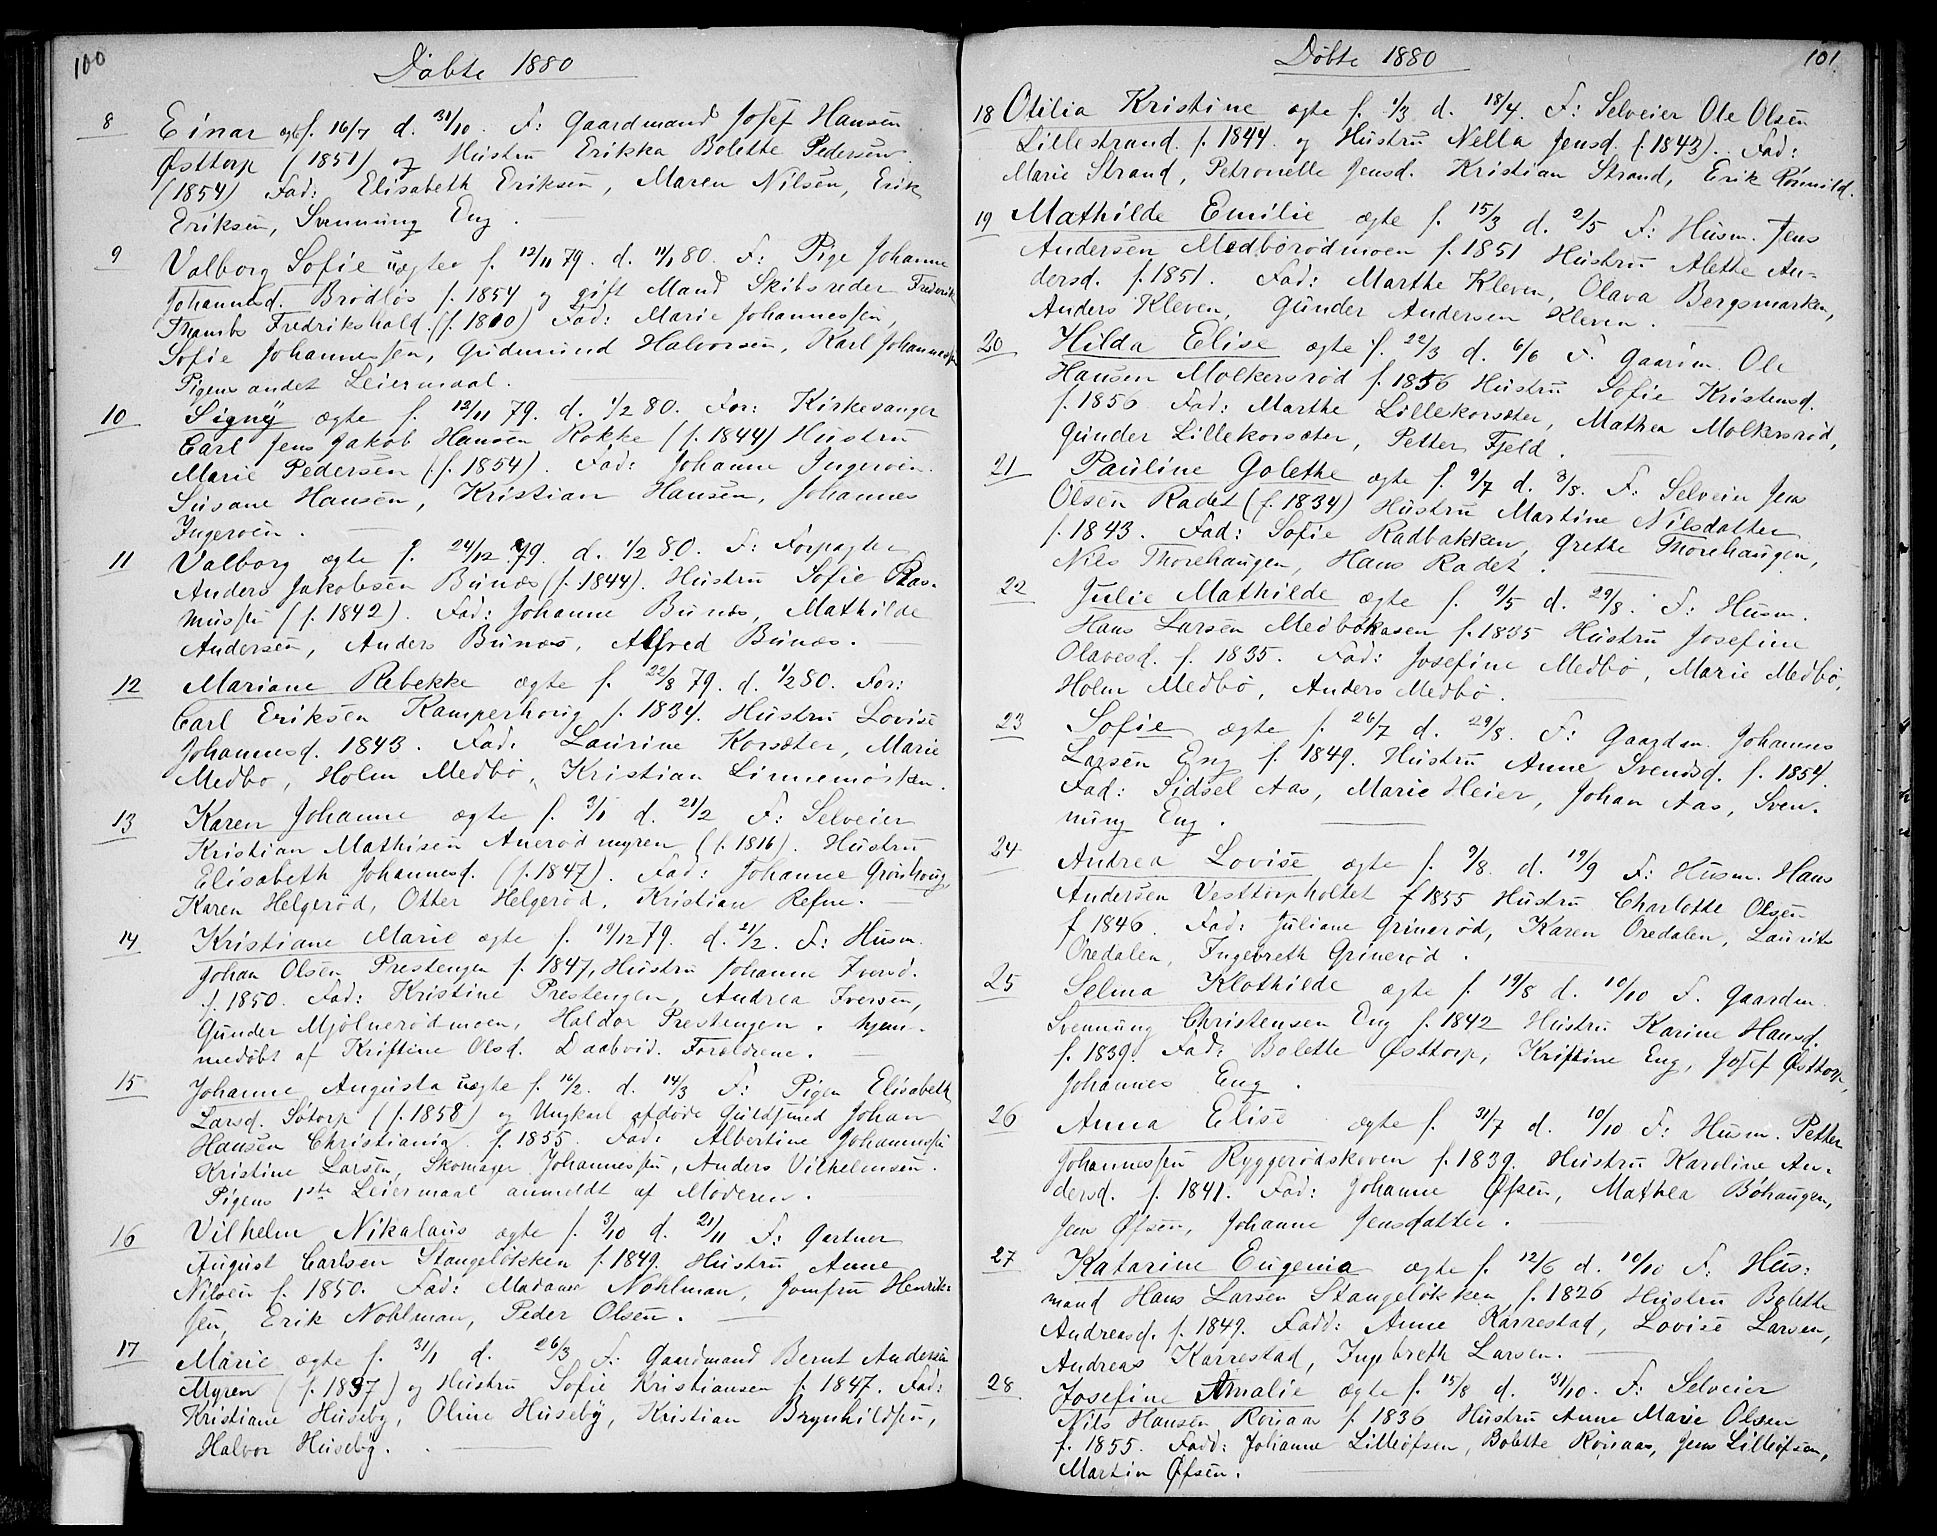 100
Döbte 1880
8 Einar ægte f. 16/7 d. 31/10. F: Gaardmand Josef Hansen
Østtorp (1851) og Hustru Erikka Bolette Pedersen
(1854) Fad: Elisabeth Eriksen, Maren Nilsen, Erik
Eriksen, Svenning Eng.
9 Valborg Sofie uægte f. 12/11 79. d. 11/1 80. F: Pige Johanne
Johannesd. Brödlös f. 1854 og gift Mand Skibsreder Frederik
Fredrikshald. (f. 1810) Fad: Marie Johannessen,
Sofie Johannessen, Gudmund Halvorsen, Karl Johannessen
Pigens andet Leiermaal.
10 Signy ægte f. 12/11 79. d. 1/2 80. For: Kirkesanger
Carl Jens Jakob Hansen Rokke (f. 1844) Hustru
Marie Pedersen (f. 1854). Fad: Johanne Ingeroen.
Susane Hansen, Kristian Hansen, Johannes
Ingeroen.
11 Valborg ægte f. 24/12 79. d. 1/2 80. F: Forpagter
Anders Jakobsen Bunæs (f. 1844). Hustru Sofie Ras-
mussen (f. 1842). Fad: Johanne Bunæs, Mathilde
Andersen, Anders Bunæs, Alfred Bunæs.
12 Mariane Rebekke ægte f. 22/8 79. d. 1/2 80. For:
Carl Eriksen Kamperhoug f. 1834. Hustru Lovise
Johannesd. 1843. Fad: Laurine Korsæter, Marie
Medbø, Holm Medbö, Kristian Linnemörken.
13 Karen Johanne ægte f. 3/1 d. 21/2 F: Selveier
Kristian Mathisen Anerödmyren (f. 1816). Hustru
Elisabeth Johannesd. (f. 1847). Fad: Johanne Grönhoug,
Karen Helgeröd, Otter Helgeröd, Kristian Refne.
14 Kristiane Marie ægte f. 19/12 79. d. 21/2. F: Husm.
Johan Olsen Prestengen f. 1847, Hustru Johanne Iversd.
f. 1850. Fad: Kristine Prestengen, Andrea Iversen,
Gunder Mjölnerödmoen, Haldor Prestengen. hjem-
medöbt af Kristine Olsd. Daabvid. Forældrene.
15 Johanne Augusta uægte f. 16/2. d. 14/3 F: Pigen Elisabeth
Larsd. Sötorp (f. 1858) og Ungkarl afdöde Guldsmed Johan
Hansen Christiania f. 1855. Fad: Albertine Johannessen
Kristine Larsen, Skomager Johannessen, Anders Vilhelmsen.
Pigens 1ste Leiermaal anmeldt af Moderen.
16 Vilhelm Nikalaus ægte f. 3/10 d. 21/11 F: Gartner
August Carlsen Stangelökken f. 1849. Hustru Anne
Nilsen f. 1850. Fad: Madame Nohlman, Jomfru Henrik-
sen, Erik Nohlman, Peder Olsen.
17 Marie ægte f. 31/1 d. 26/3 F: Gaardmand Bernt Andersen
Myren (f. 1837) og Hustru Sofie Kristiansen f. 1847. Fad:
Kristiane Huseby, Oline Huseby, Kristian Brynhildsen,
Halvor Huseby.
Döbte 1880
101
18 Otilia Kristine ægte f. 1/3 d. 18/4. F: Selveier Ole Olsen
Lillestrand f. 1844. og Hustru Nella Jensd. f. 1843). Fad:
Marie Strand, Petronelle Jensd. Kristian Strand, Erik Römild.
19 Mathilde Emilie ægte f. 15/3 d. 2/5 F: Husm. Jens
Andersen Medbörödmoen f. 1851 Hustru Alette An-
dersd. f. 1851. Fad: Marthe Kleven, Olava Bergsmarken,
Anders Kleven, Gunder Andersen Kleven.
20 Hilda Elise ægte f. 22/3 d. 6/6 F. Gaarm. Ole
Hansen Molkersröd f. 1856 Hustru Sofie Kristensd.
f. 1856 Fad: Marthe Lillekorsæter, Mathea Molkersröd,
Gunder Lillekorsæter, Petter Fjeld.
21 Pauline Golethe ægte f. 9/7 d. 8/8. F: Selveier Jens
Olsen Radet (f. 1834) Hustru Martine Nilsdatter
f. 1843. Fad: Sofie Radbakken, Grethe Thorehaugen,
Nils Thorehaugen, Hans Radet.
22 Julie Mathilde ægte f. 9/5 d. 29/8. F: Husm.
Hans Larsen Medbökasen f. 1855 Hustru Josefine
Olavesd. f. 1835. Fad: Josefine Medbö, Marie Medbö,
Holm Medbö, Anders Medbö.
23 Sofie ægte f. 26/7 d. 29/8. F: Gaardm. Johannes
Larsen Eng f. 1849. Hustru Anne Svendsd. f. 1854.
Fad: Sidsel Aas, Marie Heier, Johan Aas, Sven-
ning Eng.
24 Andrea Lovise ægte f. 9/8. d. 19/9 F: Husm. Hans
Andersen Vesttorpholtet f 1855 Hustru Charlotte Olsen
f 1846. Fad: Juliane Grineröd, Karen Oredalen, Laurits
Oredalen, Ingebreth Grineröd.
25 Selma Klothilde ægte f. 19/8 d. 10/10 F. Gaardm.
Svennung Christensen Eng f. 1842 Hustru Karine Hansd.
f. 1839. Fad: Bolette Østtorp, Kristine Eng, Josef Østtorp,
Johannes Eng.
26 Anna Elise ægte f. 31/7 d. 10/10 F: Husm. Petter
Johannessen Ryggerödskoven f. 1839. Hustru Karoline An-
dersd. f. 1841. Fad: Johanne Øfsen, Mathea Böhaugen,
Jens Øfsen, Johanne Jensdatter.
27 Katarine Eugenia ægte f. 12/6 d. 10/10 F: Hus:
mand Hans Larsen Stangelökken f. 1826 Hustru Bolette
Andreasd. f. 1849. Fadd: Anne Karrestad, Lovise Larsen,
Andreas Karrestad, Ingebreth Larsen.
28 Josefine Amalie ægte f. 15/8 d. 31/10. F: Selveier
Nils Hansen Rönaas f. 1836 Hustru Anne Marie Olsen
f. 1855. Fadd: Johanne Lilleöfsen, Bolette Rönaas, Jens Lilleöfsen,
Martin Øfsen.